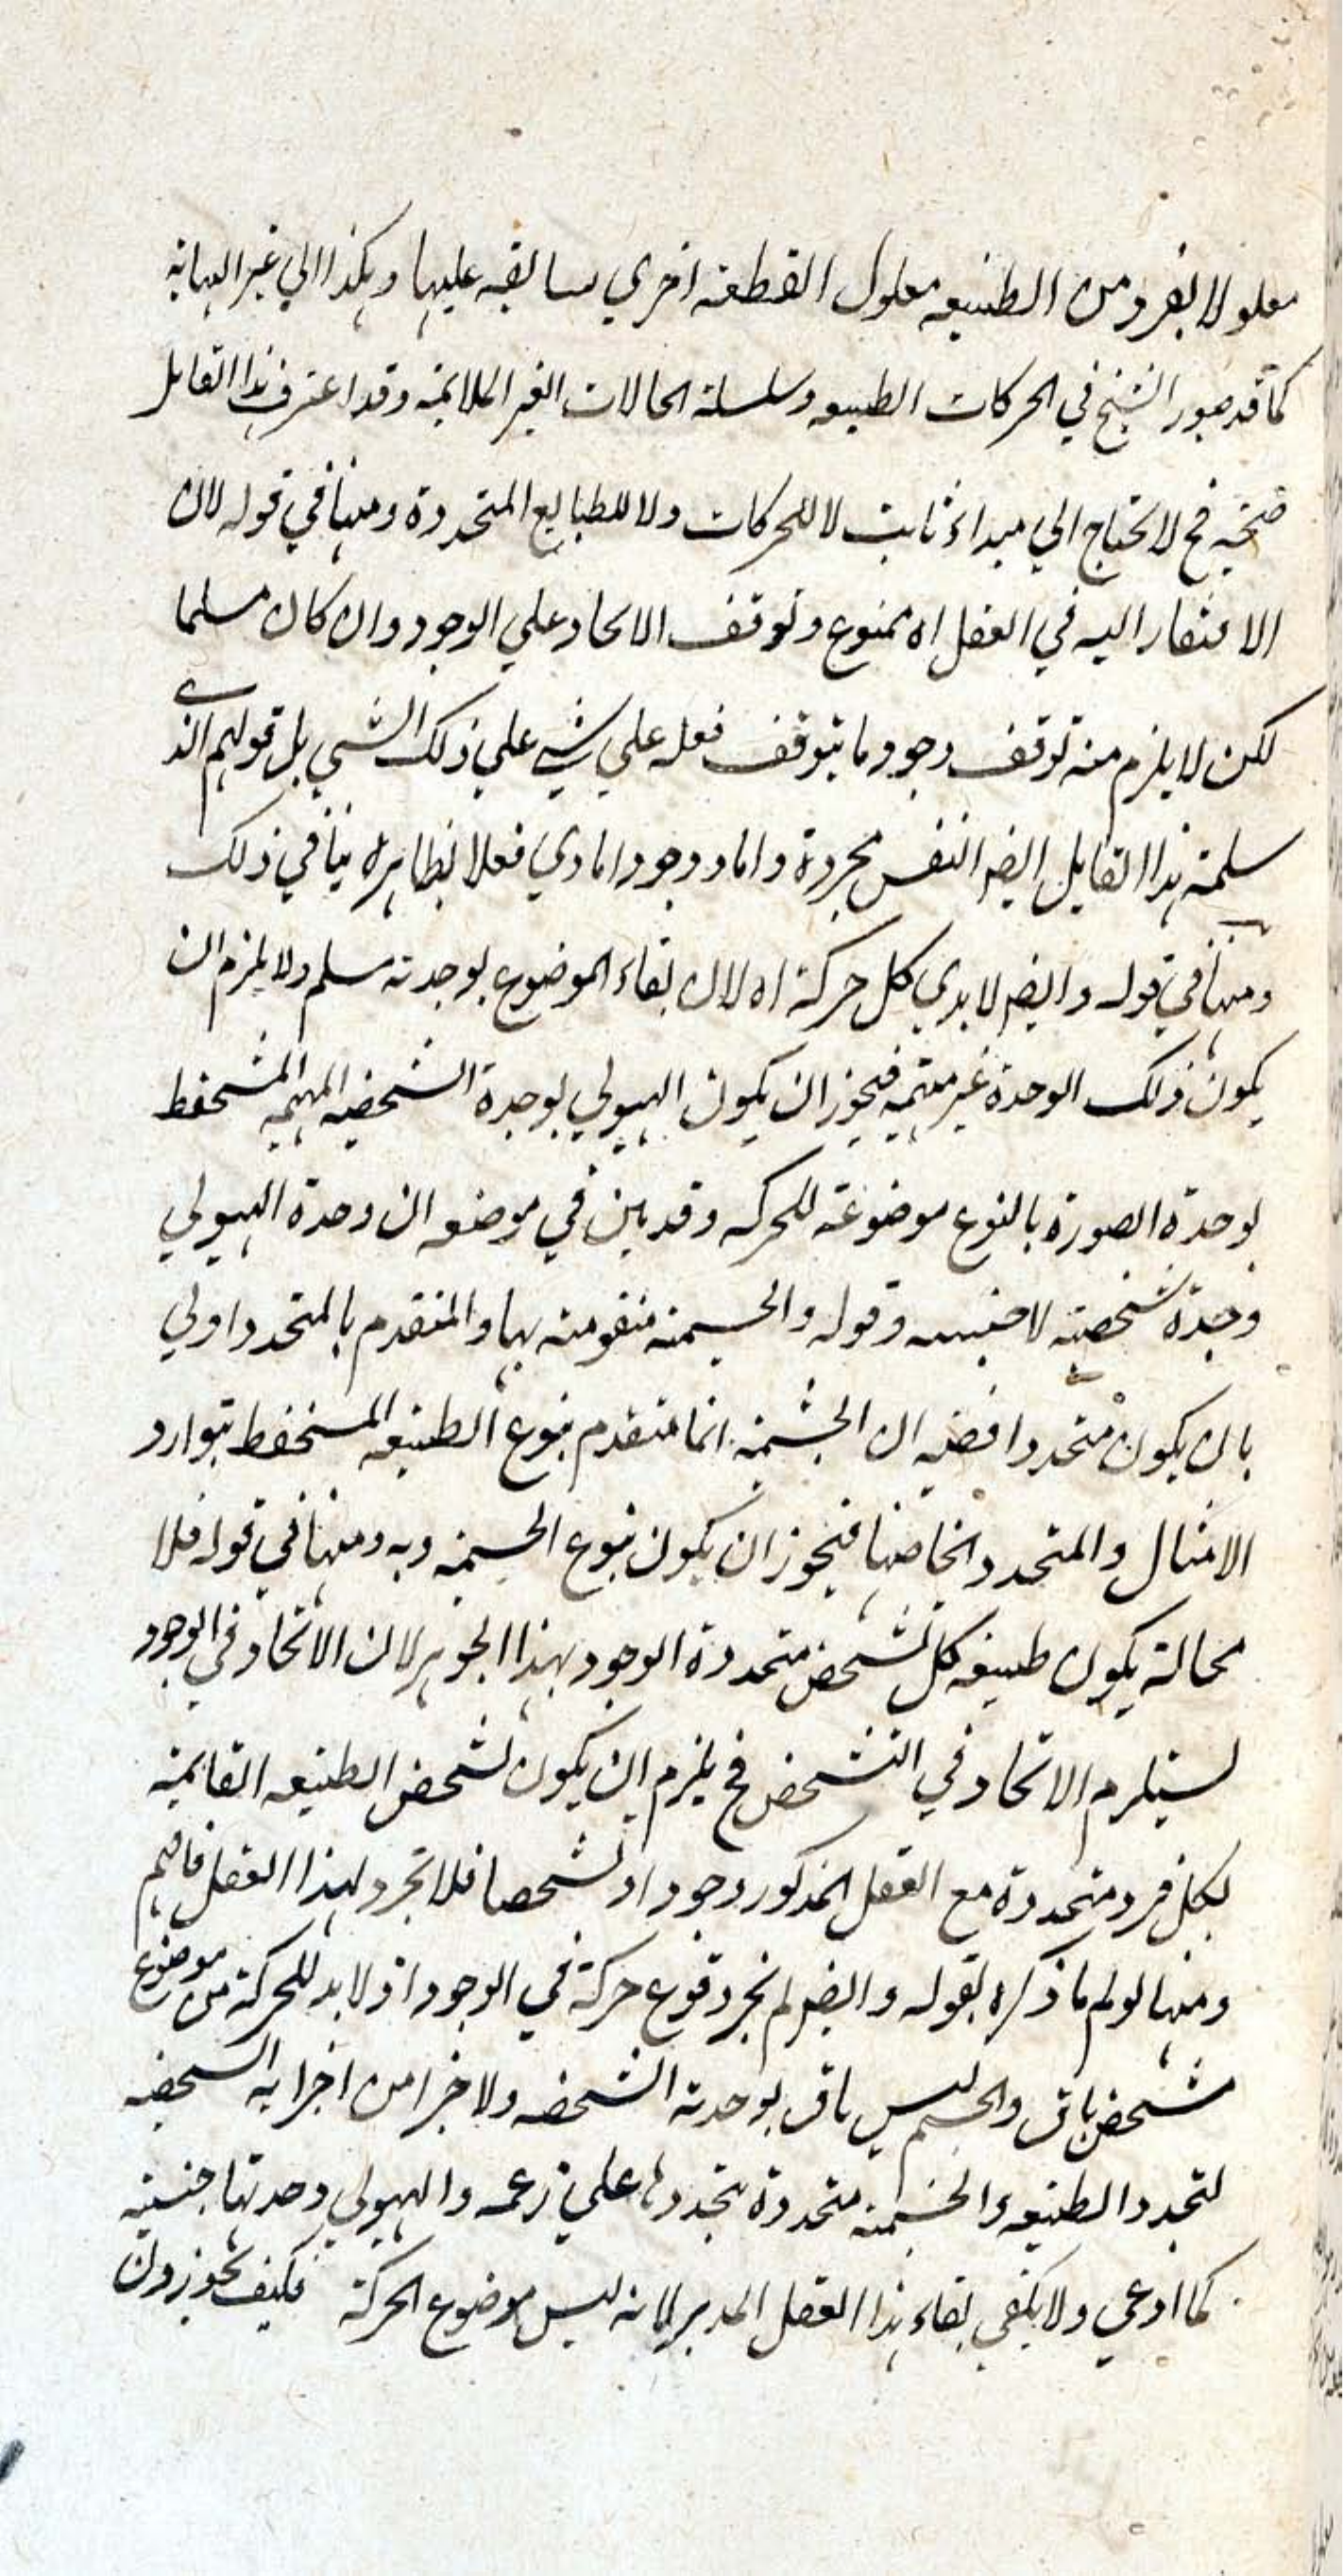 معلولا لفرد من الطبيعه معلول القطعة اخري سابقه عليها وهكذا الي غير النهاية
كما قد صور الشيخ في الحركات الطبيعه وسلسلة الحالات الغير الملايمة وقد اعترف هذا القايل
فح لا يحتاج الي مبداء ثابت لا للحركات ولا للطبايع المتجددة ومنها في قوله لان
الافتقار اليه في الفعل اه ممنوع وتوقف الايجاد علي الوجود وان كان مسلما
لكن لا يلزم منه توقف وجود ما يتوقف فعله علي شي علي ذلك الشي بل قولهم الذي
سلمته هذا القايل ايضا النفس مجردة واما وجودا مادي فعلا بظاهره ينافي ذلك
ومنها في قوله وايضا لا بد في كل حركة اه لان بقاء الموضوع بوحدته مسلم ولا يلزم ان
يكون ذلك الوحدة غير مبهمة فيجوز ان يكون الهيولي بوحدة الشخصيه المبهمه المنحفظ
بوحدة الصورة بالنوع موضوعة للحركه وقد بين في موضعه ان وحدة الهيولي
وحدة شخصية لا جنسيه وقوله والجسمية متقومة بها والمتقدم بالمتجدد اولي
بان يكون متجددا ففيه ان الجسمية انما متقدم بنوع الطبيعه المنحفظ بتوارد
الامثال والمتجدد اشخاصها فيجوز ان يكون بنوع الجسميه وبه ومنها في قوله فلا
محالة يكون طبيعه كل شخص متجددة الوجود بهذا الجوهر لان الاتحاد في الوجود
يستلزم الاتحاد في التشخص فح يلزم ان يكون تشخص الطبيعه القايمة
بكل فرد متجددة مع العقل المذكور وجودا وتشخصا فلا تجرد لهذا العقل فافهم
ومنها لو تم ما ذكره بقوله وايضا لم يجز وقوع حركة في الوجود اذ لا بد للحركة من موضوع
مشخص باق والجسم ليس باق بوحدته الشخصه ولا جزا من اجزايه الشخصيه
لتجدد الطبيعه والجسمية متجددة بتجددها علي زعمه والهيولي وحدتها جنسية
كما ادعي ولا يكفي بقاء هذا العقل المدبر لانه ليس موضوع الحركة فكيف يجوزون